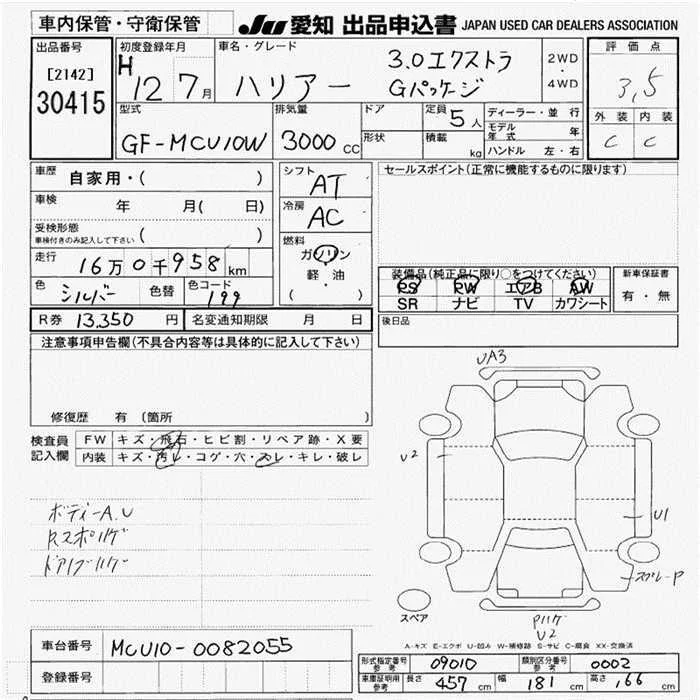 車内保管・守衛保管
JU 愛知 出品申込書 JAPAN USED CAR DEALERS ASSOCIATION
出品番号
[2142]
30415
初度登録年月
H 12 7月
車名・グレード
ハリアー
3.0エクストラ
Gパッケージ
2WD
・
4WD
評価点
3,5
外装 内装
C C
型式
GF-MCU10W
排気量
3000 CC
ドア
形状
定員 5人
積載 kg
ディーラー・並行
モデル年式 年
ハンドル 左・右
車歴 自家用・( )
車検 年 月( 日)
受検形態
車検付きのみ記入して下さい ( )
走行 16万0千958 km
色 シルバー 色替 色コード 199
シフト AT
冷房 AC
燃料
ガソリン
軽・油
( )
セールスポイント(正常に機能するものに限ります)
装備品(純正品に限り○をつけてください)
PS PW エアB AW
SR ナビ TV カワシート
新車保証書
有・無
R券 13,350 円 名変通知期限 月 日
後日品
注意事項申告欄(不具合内容等は具体的に記入して下さい)
修復歴 有 〔箇所 〕
検査員
記入欄
FW キズ・飛石・ヒビ割・リペア跡・X要
内装 キズ・汚レ・コゲ・穴・スレ・キレ・破レ
ボディーA.U
UA3
U2
U1
スペア
U2
A-キズ E-エクボ U-凹み W-補修跡 S-サビ C-腐食 XX-交換済
車台番号 MCU10-0082055
登録番号
形式指定番号
参考 09010
類別区分番号
参考 0002
車庫証明用
参考 長さ 457 cm 幅 181 cm 高さ ,66 cm